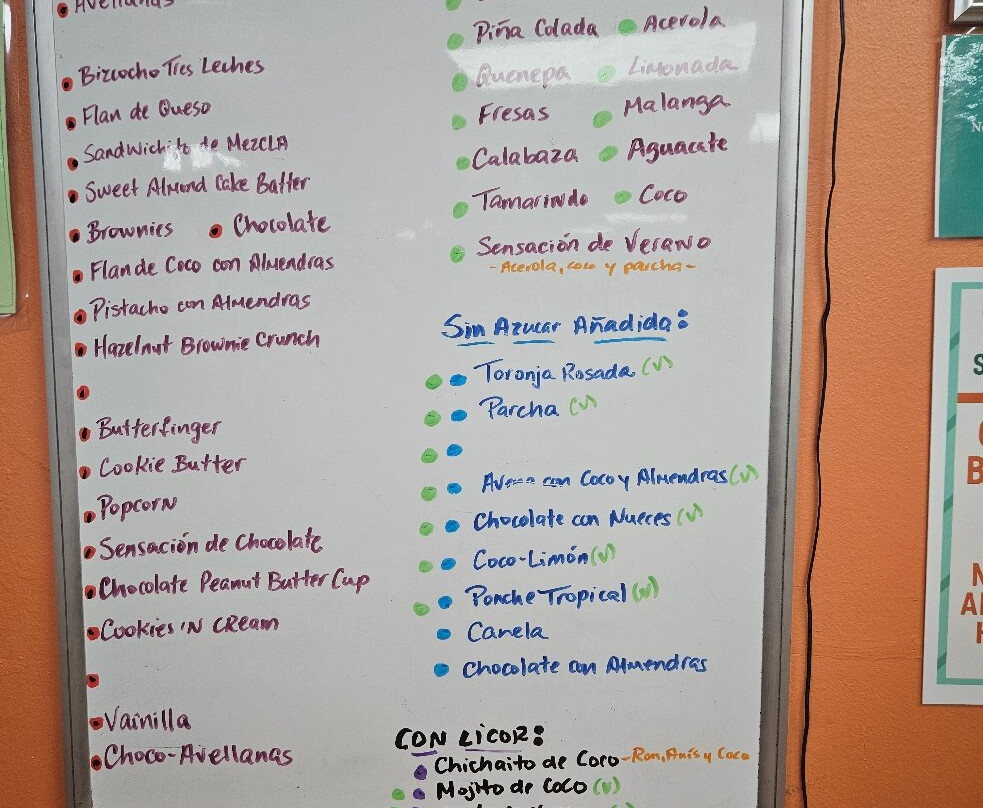 Avellanas
Bizcocho Tres Leches
Flan de Queso
Sandwichito de Mezcla
Sweet Almond Cake Batter
Brownies Chocolate
Flan de Coco con Almendras
Pistacho con Almendras
Hazelnut Brownie Crunch
Butterfinger
Cookie Butter
Popcorn
Sensación de Chocolate
Chocolate Peanut Butter Cup
Cookies 'N Cream
Vainilla
Choco-Avellanas
Piña Colada Acerola
Quenepa Limonada
Fresas Malanga
Calabaza Aguacate
Tamarindo Coco
Sensación de Verano
- Acerola, coco y parcha -
Sin Azucar Añadida:
Toronja Rosada (V)
Parcha (V)
Avena con Coco y Almendras (V)
Chocolate con Nueces (V)
Coco-Limón (V)
Ponche Tropical (V)
Canela
Chocolate con Almendras
CON LICOR:
Chichaito de Coco - Ron, Anís y Coco
Mojito de Coco (V)